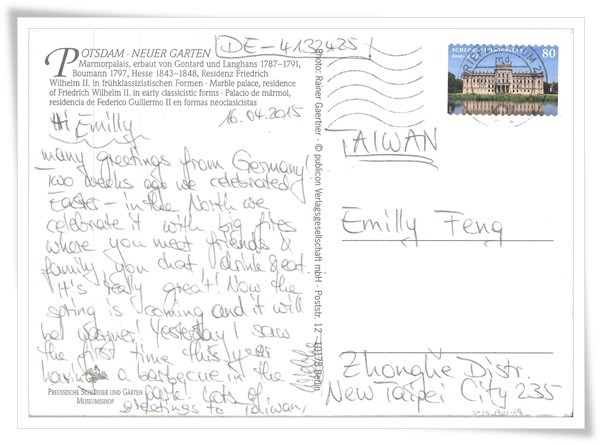 POTSDAM · NEUER GARTEN
Marmorpalais, erbaut von Gontard und Langhans 1787–1791,
Boumann 1797, Hesse 1843–1848, Residenz Friedrich
Wilhelm II. in frühklassizistischen Formen · Marble palace, residence
of Friedrich Wilhelm II. in early classicistic forms · Palacio de mármol,
residencia de Federico Guillermo II en formas neoclasicistas
DE-4132425
16.04.2015
Hi Emilly
many greetings from Germany!
Two weeks ago we celebrated
Easter - in the North we
celebrate it with big fires
where you meet friends &
family you chat, drink & eat.
It's really great! Now the
spring is coming and it will
be warmer! Yesterday I saw
the first time this year
having a barbecue in the
park. Lots of
greetings to Taiwan,
PREUSSISCHE SCHLÖSSER UND GÄRTEN
MUSEUMSHOP
Photo: Rainer Gaertner · © publicon Verlagsgesellschaft mbH · Poststr. 12 · 10178 Berlin
80
TAIWAN
Emilly Feng
Zhonghe Distr.
New Taipei City 235